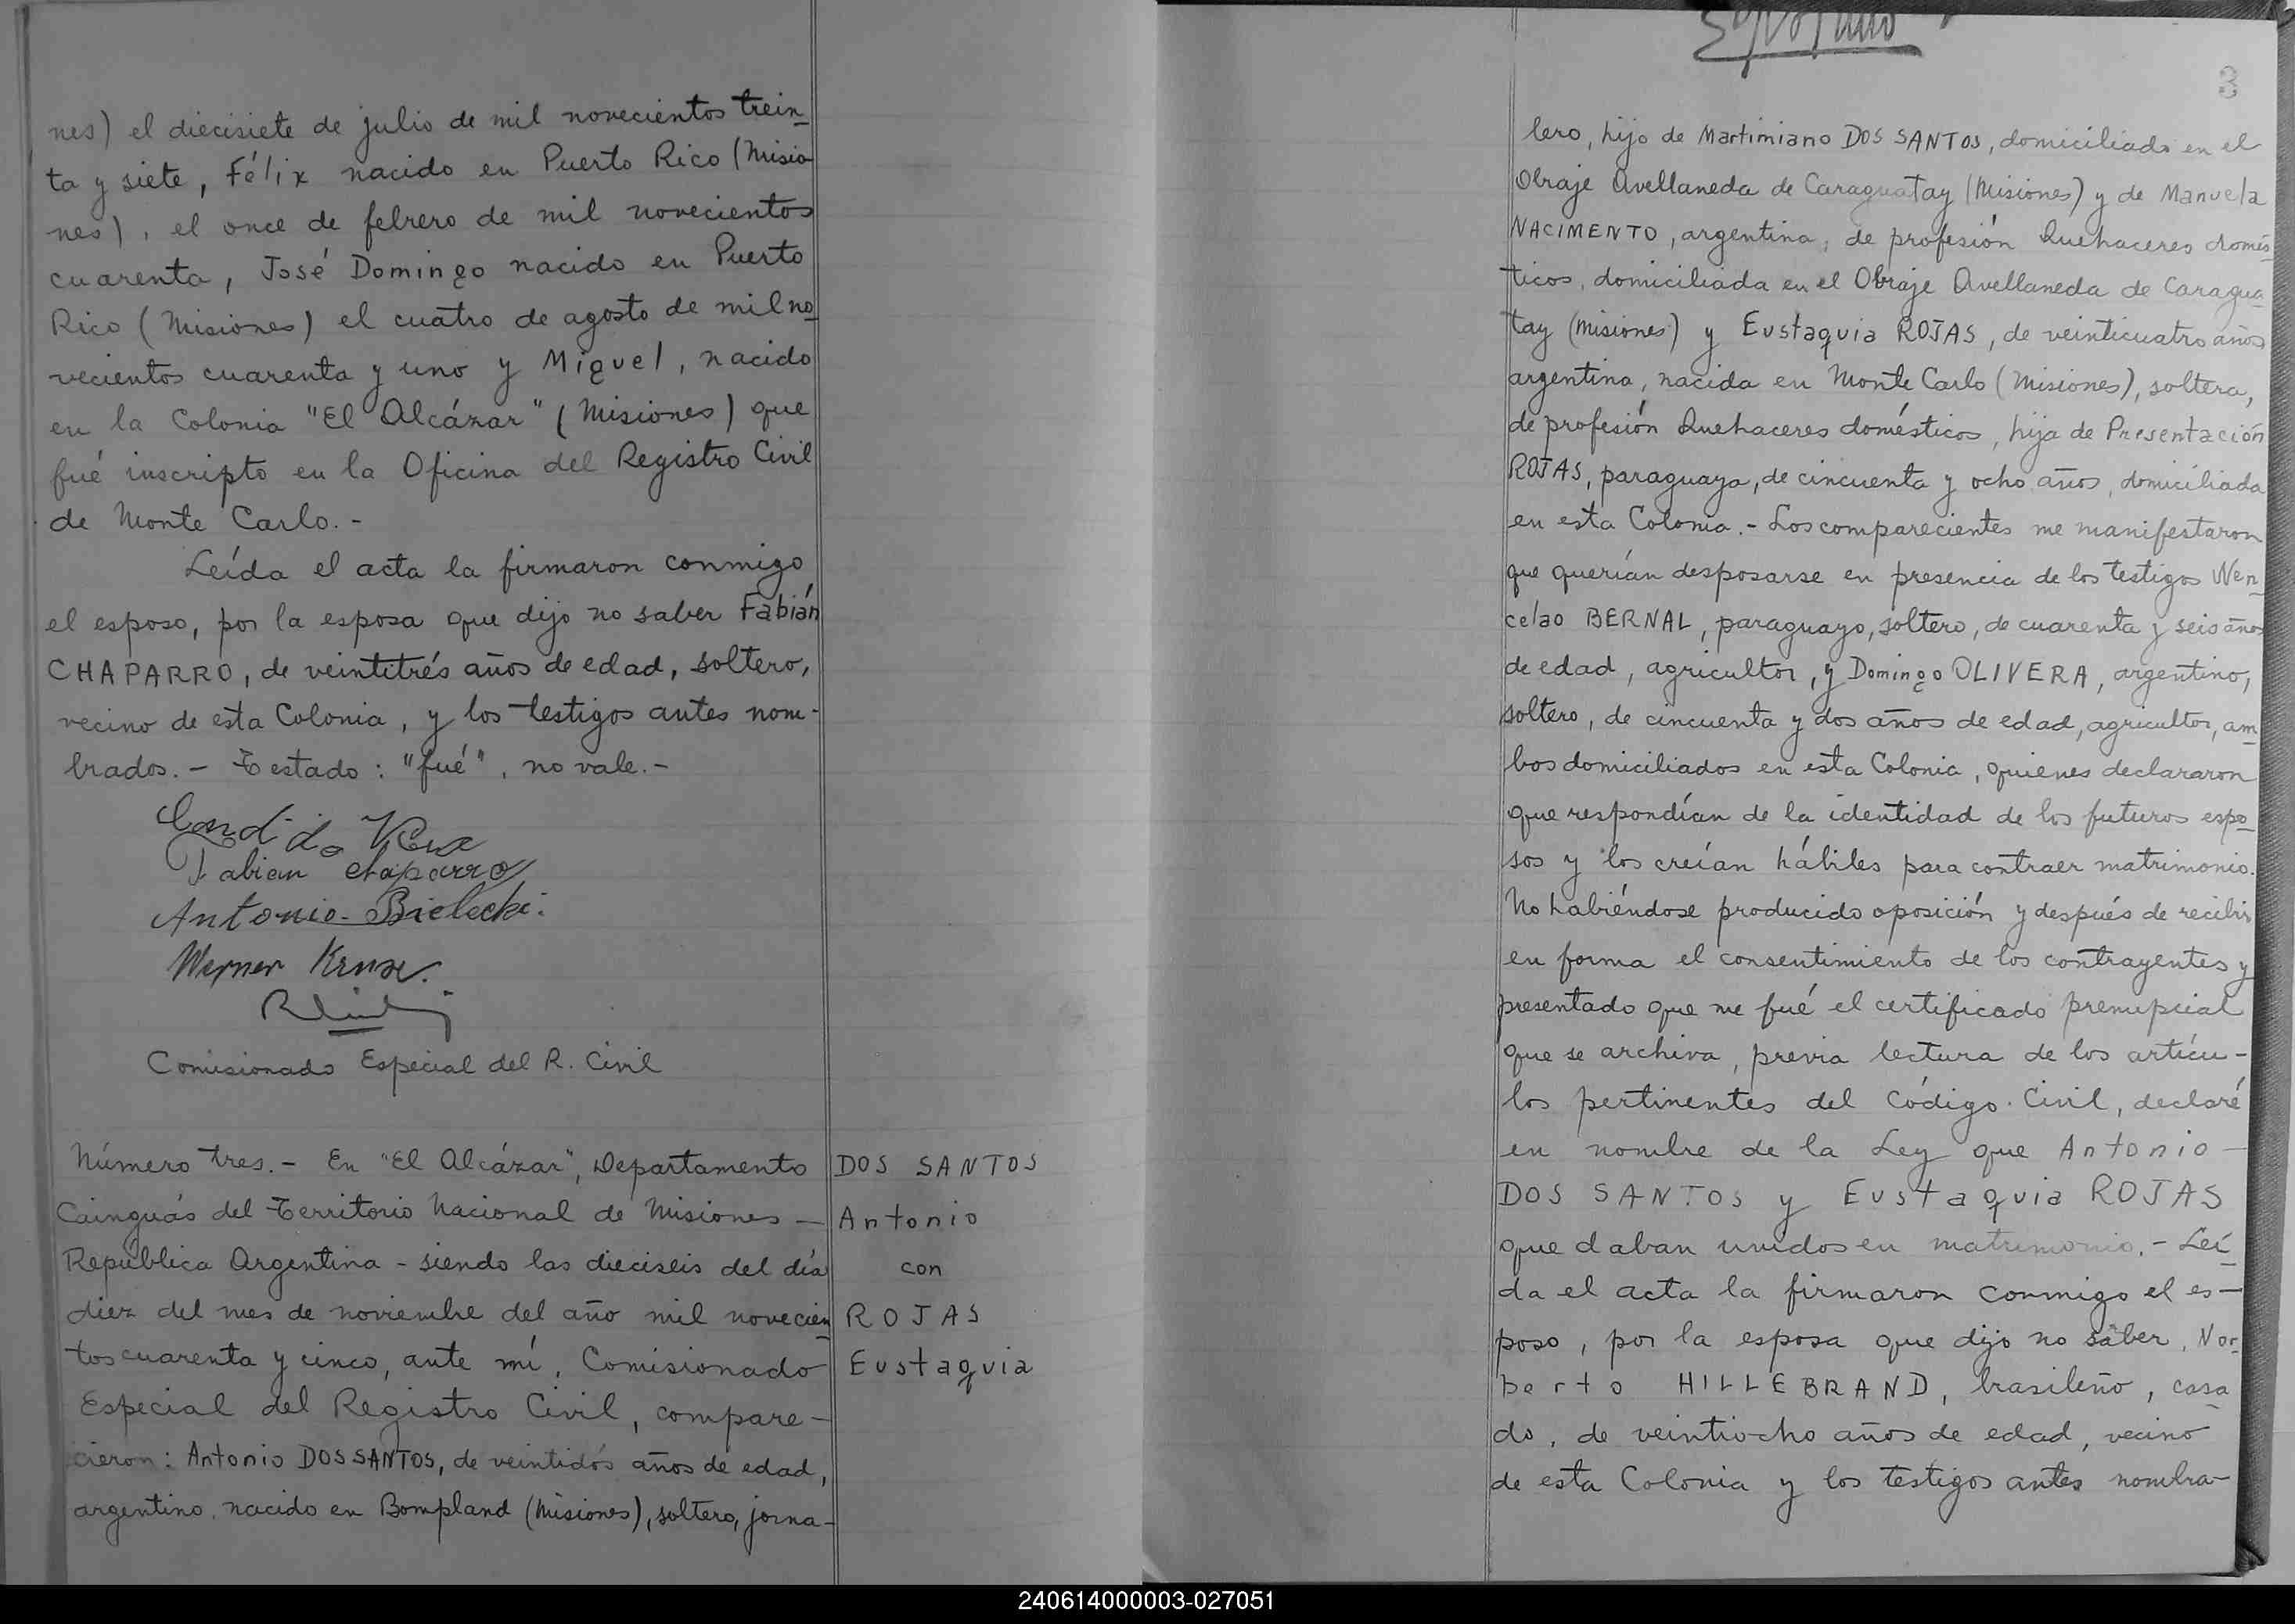 nes) el diecisiete de julio de mil novecientos trein
ta y siete, Félix nacido en Puerto Rico (Misio
nes), el once de febrero de mil novecientos
cuarenta, José Domingo nacido en Puerto
Rico (Misiones) el cuatro de agosto de mil no
vecientos cuarenta y uno y Miguel, nacido
en la Colonia "El Alcázar" (Misiones) que
fué inscripto en la Oficina del Registro Civil
de Monte Carlo.-
Leída el acta la firmaron conmigo
el esposo, por la esposa que dijo no saber Fabián
CHAPARRO, de veintitrés años de edad, soltero,
vecino de esta Colonia, y los testigos antes nom-
brados.- Testado: "fué", no vale.-
Fabian chaparro
Antonio Bielecki.
Werner Kruse.
Comisionado Especial del R. Civil
Número tres.- En "El Alcázar", Departamento
Cainguás del Territorio Nacional de Misiones -
República Argentina - siendo las dieciseis del día
diez del mes de noviembre del año mil novecien
tos cuarenta y cinco, ante mí, Comisionado
Especial del Registro Civil, compare-
cieron: Antonio DOS SANTOS, de veintidós años de edad,
argentino, nacido en Bompland (Misiones), soltero, jorna-
DOS SANTOS
Antonio
con
ROJAS
Eustaquia
3
lero, hijo de Martimiano DOS SANTOS, domiciliado en el
Obraje Avellaneda de Caraguatay (Misiones) y de Manuela
NACIMENTO, argentina, de profesión Quehaceres domés
ticos, domiciliada en el Obraje Avellaneda de Caragua
tay (Misiones) y Eustaquia ROJAS, de veinticuatro años
argentina, nacida en Monte Carlo (Misiones), soltera,
de profesión Quehaceres domésticos, hija de Presentación
ROJAS, paraguaya, de cincuenta y ocho años, domiciliada
en esta Colonia.- Los comparecientes me manifestaron
que querían desposarse en presencia de los testigos Wen
celao BERNAL, paraguayo, soltero, de cuarenta y seis años
de edad, agricultor, y Domingo OLIVERA, argentino,
soltero, de cincuenta y dos años de edad, agricultor, am
bos domiciliados en esta Colonia, quienes declararon
que respondían de la identidad de los futuros espo
sos y los creían hábiles para contraer matrimonio.
No habiéndose producido oposición y después de recibir
en forma el consentimiento de los contrayentes y
presentado que me fué el certificado prenupcial
que se archiva, previa lectura de los artícu-
los pertinentes del Código Civil, declaré
en nombre de la Ley que Antonio -
DOS SANTOS y Eustaquia ROJAS
que daban unidos en matrimonio.- Leí
da el acta la firmaron conmigo el es-
poso, por la esposa que dijo no saber, Nor
berto HILLEBRAND, brasileño, casa
do, de veintiocho años de edad, vecino
de esta Colonia y los testigos antes nombra-
240614000003-027051